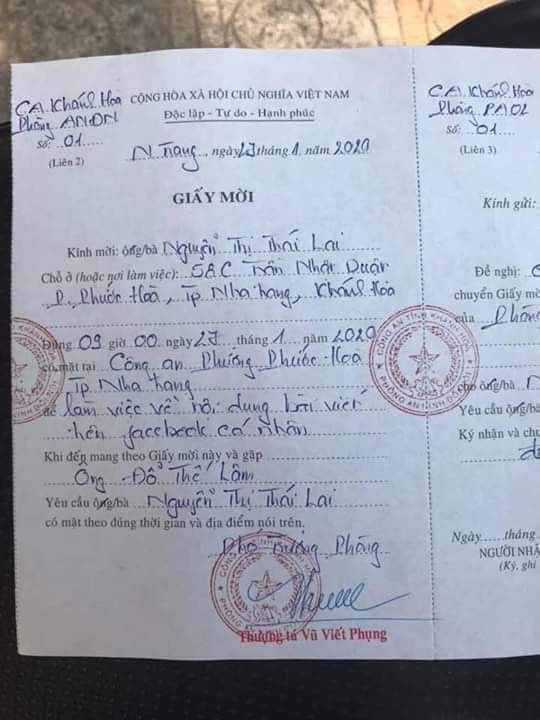 C.A. Khánh Hoà
Phòng ANĐN
Số: 01
(Liên 2)
CỘNG HÒA XÃ HỘI CHỦ NGHĨA VIỆT NAM
Độc lập - Tự do - Hạnh phúc
N Trang, ngày 23 tháng 1 năm 2020
GIẤY MỜI
Kính mời: ông/bà Nguyễn Thị Thái Lai
Chỗ ở (hoặc nơi làm việc): 58C Trần Nhật Duật
P. Phước Hoà, Tp Nha Trang, Khánh Hoà
Đúng 09 giờ 00 ngày 27 tháng 1 năm 2020
có mặt tại Công an Phường Phước Hoà
Tp Nha Trang
để làm việc về nội dung bài viết
trên facebook cá nhân
Khi đến mang theo Giấy mời này và gặp
Ông Đỗ Thế Lâm
Yêu cầu ông/bà Nguyễn Thị Thái Lai
có mặt theo đúng thời gian và địa điểm nói trên.
Phó Trưởng Phòng
CÔNG AN TỈNH KHÁNH HÒA
PHÒNG AN NINH ĐỐI NGOẠI
Thượng tá Vũ Viết Phụng
CÔNG AN TỈNH KHÁNH HÒA
PHÒNG AN NINH ĐỐI NGOẠI
C.A. Khánh Hoà
Phòng PA02
Số: 01
(Liên 3)
Kính gửi:
Đề nghị:
chuyển Giấy mời
của Phòng
cho ông/bà N
Yêu cầu ông/bà
Ký nhận và chu
Ngày tháng
NGƯỜI NHẬ
(Ký, ghi